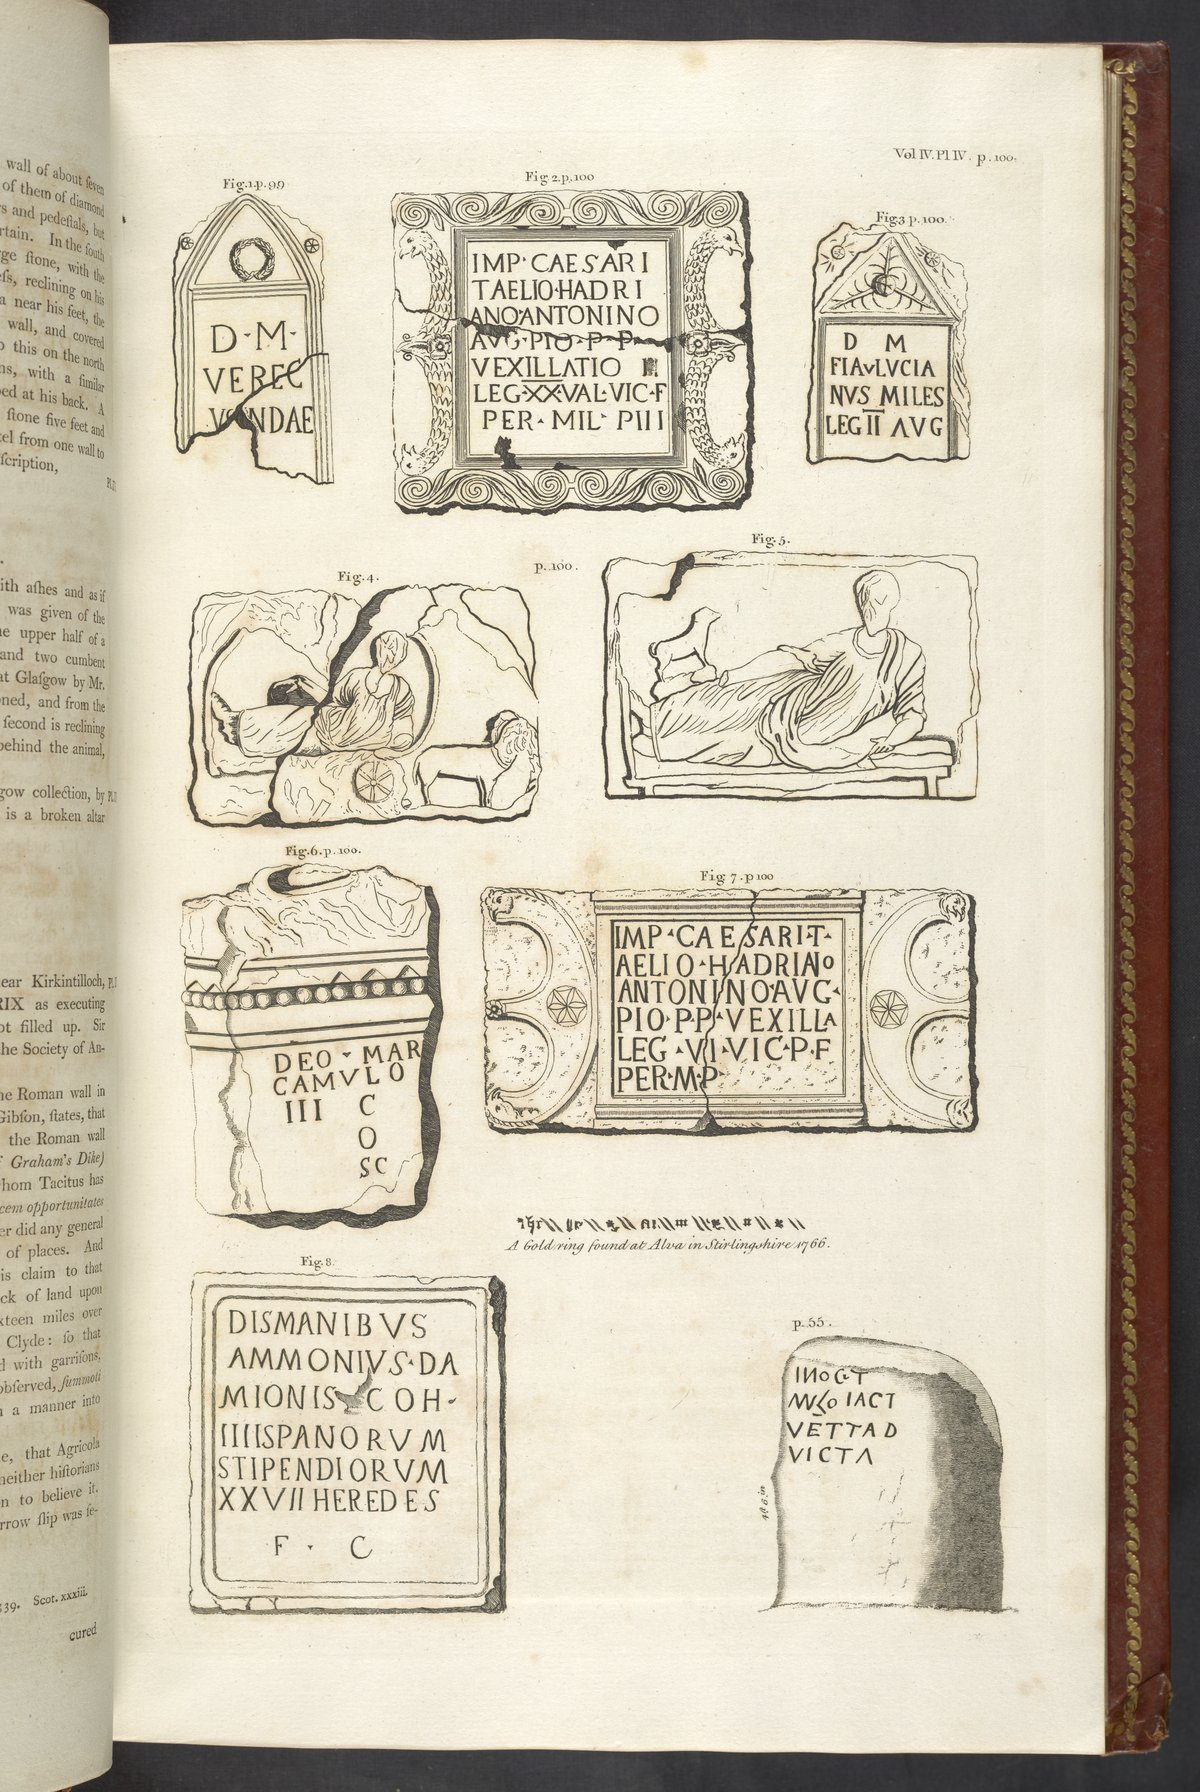 wall of about seven
of them of diamond
s and pedestals, but
rtain. In the south
rge stone, with the
ess, reclining on his
a near his feet, the
wall, and covered
o this on the north
ns, with a similar
ped at his back. A
stone five feet and
tel from one wall to
scription,
ith ashes and as if
was given of the
he upper half of a
and two cumbent
at Glasgow by Mr.
oned, and from the
second is reclining
behind the animal,
gow collection, by
is a broken altar
ear Kirkintilloch,
RIX as executing
ot filled up. Sir
the Society of An-
he Roman wall in
Gibson, states, that
the Roman wall
f Graham's Dike)
hom Tacitus has
cem opportunitates
er did any general
of places. And
is claim to that
ck of land upon
xteen miles over
Clyde: so that
d with garrisons,
observed, summoti
n a manner into
e, that Agricola
neither historians
n to believe it.
rrow slip was se-
39. Scot. xxxiii.
cured
Vol IV. Pl IV. p. 100.
Fig. 1. p. 99
D · M ·
VEREC
VNDAE
Fig 2. p. 100
IMP · CAESARI
TAELIO·HADRI
ANO·ANTONINO
AVG·PIO·P·P·
VEXILLATIO
LEG·XX·VAL·VIC·F
PER · MIL · PIII
Fig 3 p. 100.
D M
FIAVLVCIA
NVS MILES
LEG II AVG
Fig. 4.
p. 100.
Fig. 5.
Fig. 6. p. 100.
DEO · MAR
CAMVLO
III C
O
SC
Fig 7. p 100
IMP·CAESARI·T·
AELIO·HADRIANO
ANTONINO·AVG·
PIO·P·P·VEXILLA
LEG·VI·VIC·P·F
PER·M·P
A Gold ring found at Alva in Stirlingshire 1766.
Fig. 8.
DISMANIBVS
AMMONIVS·DA
MIONIS COH·
IIIISPANORVM
STIPENDIORVM
XXVII HEREDES
F · C
p. 55.
VETTAD
VICTA